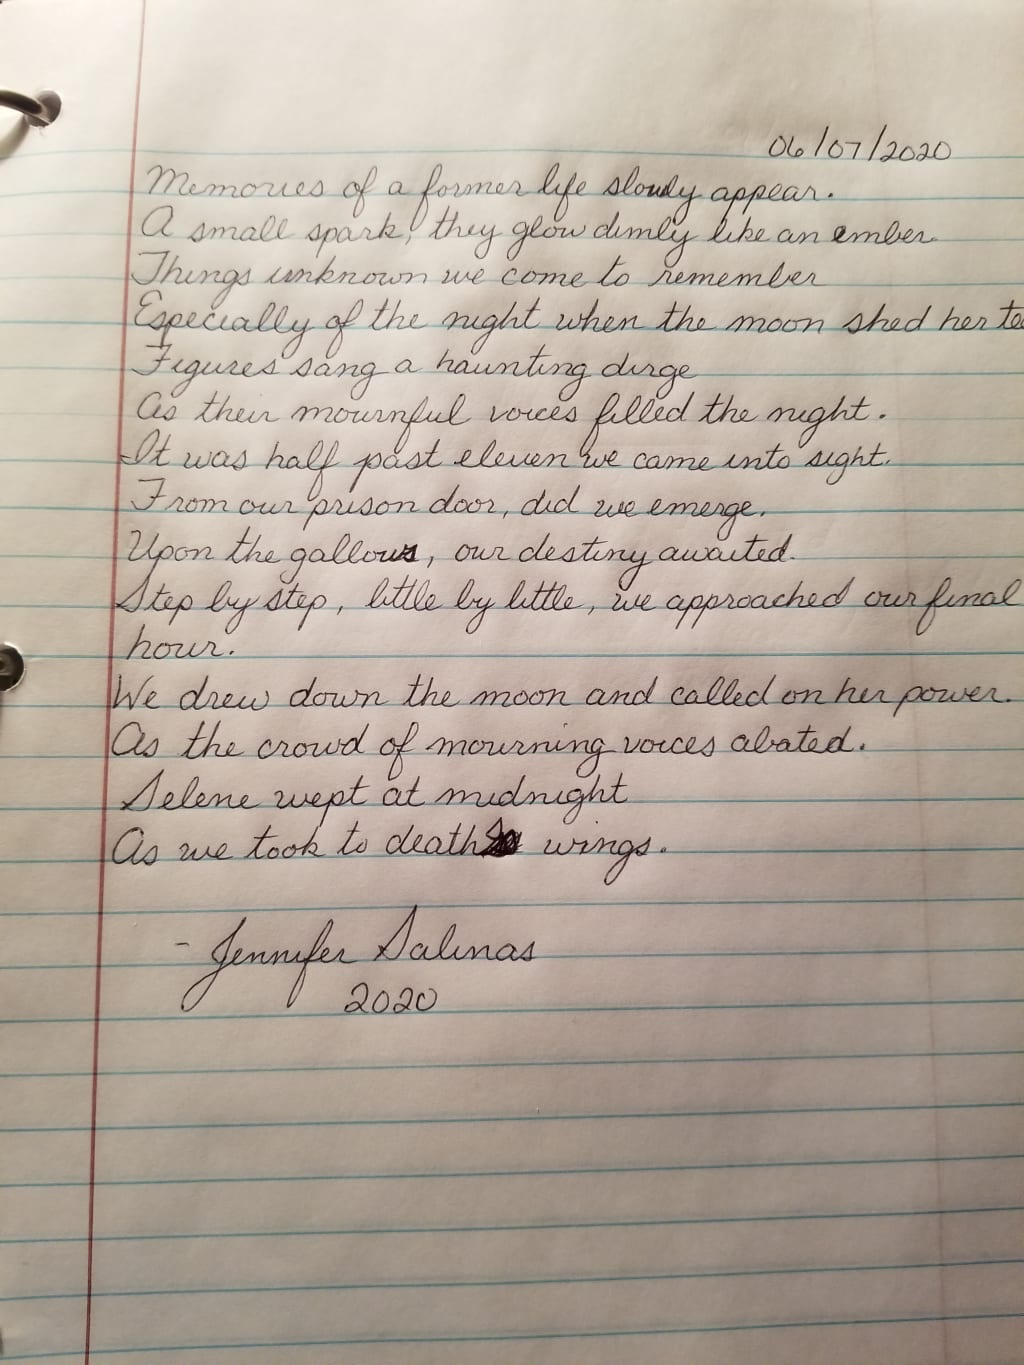 06/07/2020
Memories of a former life slowly appear.
A small spark, they glow dimly like an ember.
Things unknown we come to remember
Especially of the night when the moon shed her
Figures sang a haunting dirge
As their mournful voices filled the night.
It was half past eleven we came into sight.
From our prison door, did we emerge.
Upon the gallows, our destiny awaited.
Step by step, little by little, we approached our final
hour.
We drew down the moon and called on her power.
As the crowd of mourning voices abated.
Selene wept at midnight
As we took to deaths wings.
- Jennifer Salinas
2020